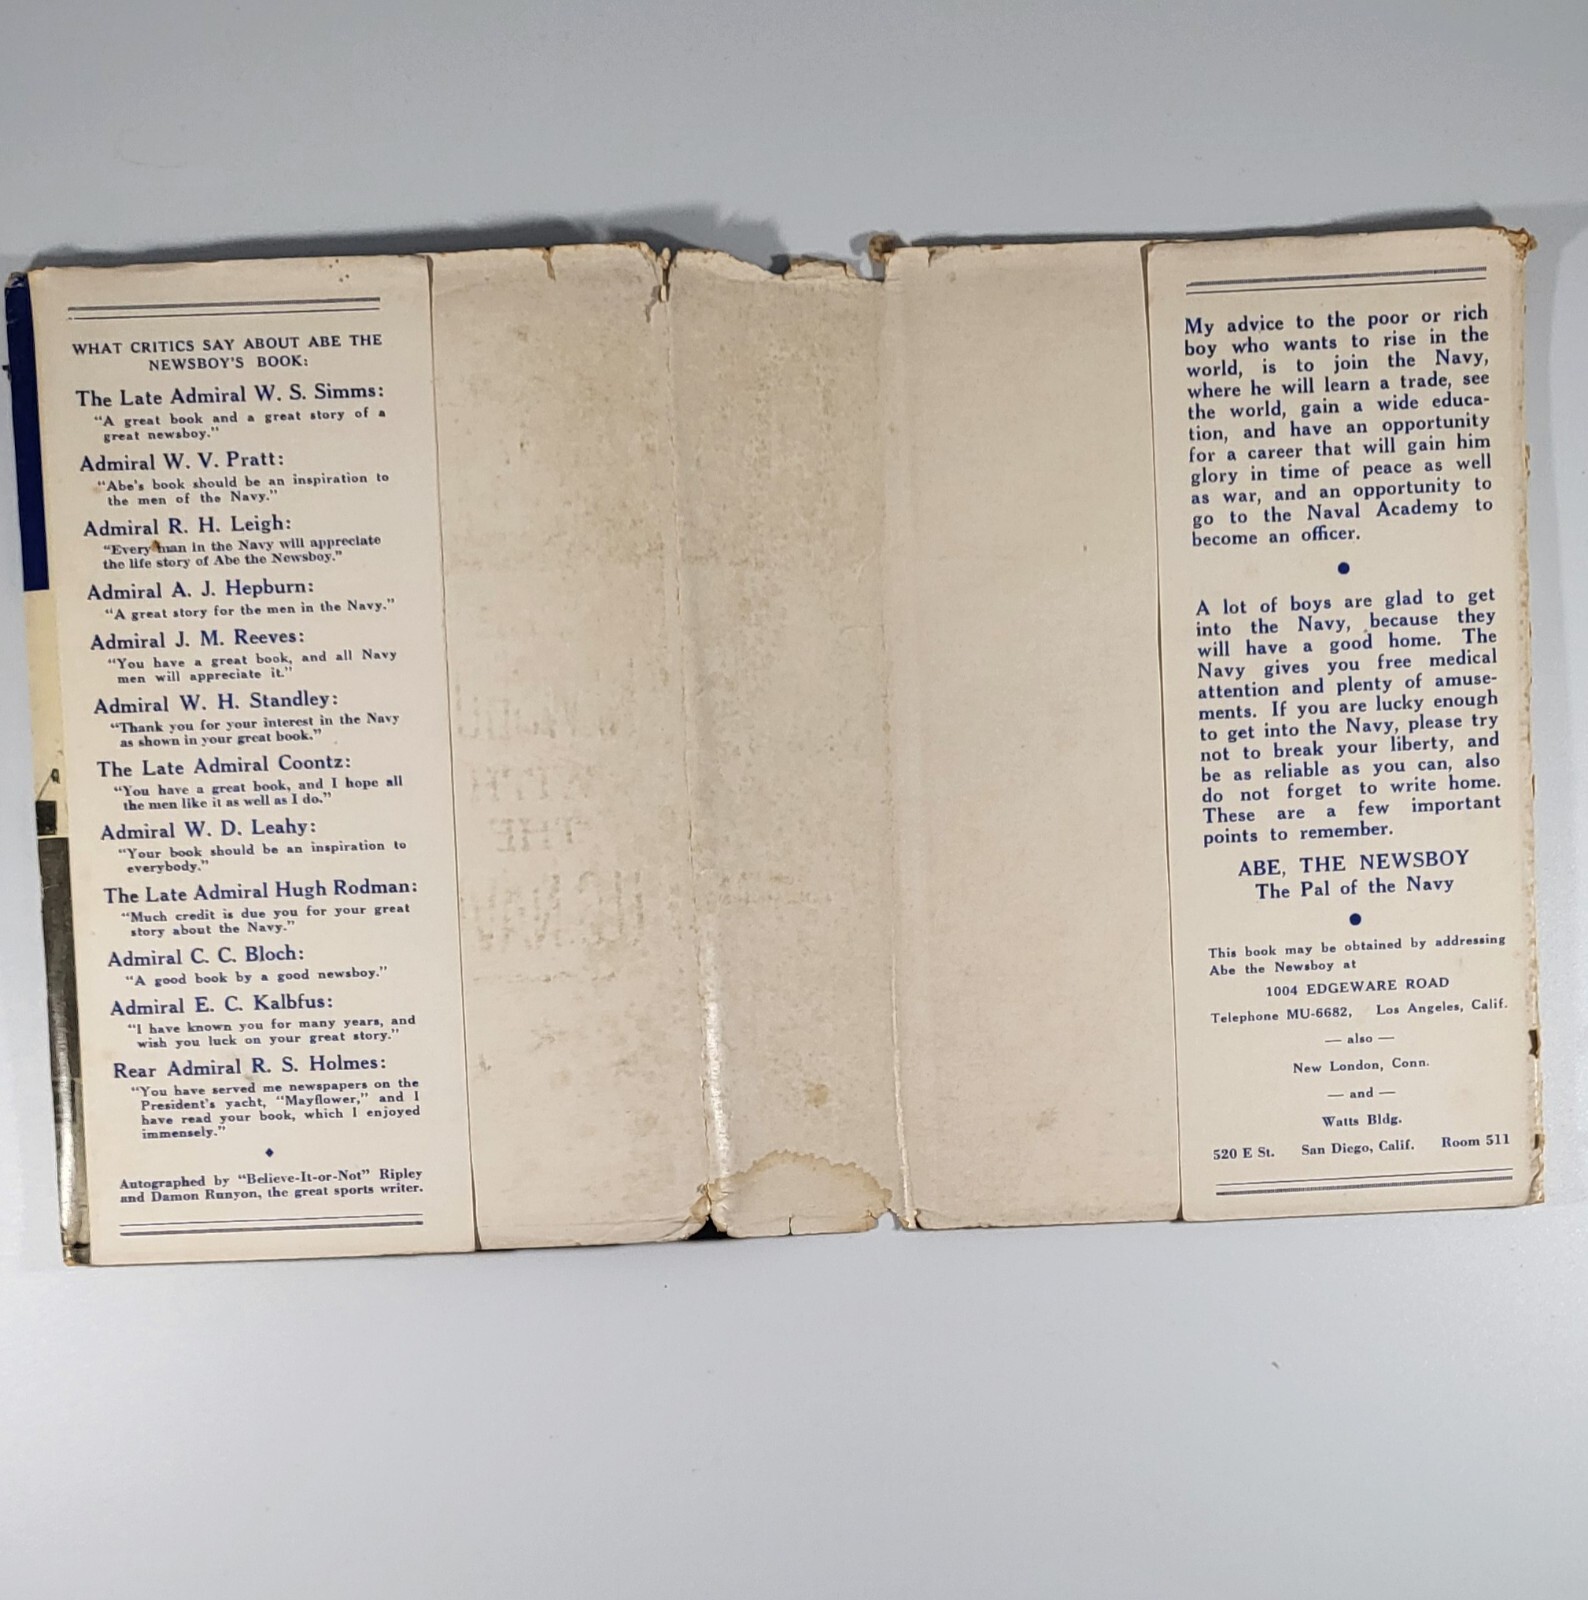 WHAT CRITICS SAY ABOUT ABE THE
NEWSBOY'S BOOK:
The Late Admiral W. S. Simms:
"A great book and a great story of a
great newsboy."
Admiral W. V. Pratt:
"Abe's book should be an inspiration to
the men of the Navy."
Admiral R. H. Leigh:
"Every man in the Navy will appreciate
the life story of Abe the Newsboy."
Admiral A. J. Hepburn:
"A great story for the men in the Navy."
Admiral J. M. Reeves:
"You have a great book, and all Navy
men will appreciate it."
Admiral W. H. Standley:
"Thank you for your interest in the Navy
as shown in your great book."
The Late Admiral Coontz:
"You have a great book, and I hope all
the men like it as well as I do."
Admiral W. D. Leahy:
"Your book should be an inspiration to
everybody."
The Late Admiral Hugh Rodman:
"Much credit is due you for your great
story about the Navy."
Admiral C. C. Bloch:
"A good book by a good newsboy."
Admiral E. C. Kalbfus:
"I have known you for many years, and
wish you luck on your great story."
Rear Admiral R. S. Holmes:
"You have served me newspapers on the
President's yacht, "Mayflower," and I
have read your book, which I enjoyed
immensely."
Autographed by "Believe-It-or-Not" Ripley
and Damon Runyon, the great sports writer.
My advice to the poor or rich
boy who wants to rise in the
world, is to join the Navy,
where he will learn a trade, see
the world, gain a wide educa-
tion, and have an opportunity
for a career that will gain him
glory in time of peace as well
as war, and an opportunity to
go to the Naval Academy to
become an officer.
A lot of boys are glad to get
into the Navy, because they
will have a good home. The
Navy gives you free medical
attention and plenty of amuse-
ments. If you are lucky enough
to get into the Navy, please try
not to break your liberty, and
be as reliable as you can, also
do not forget to write home.
These are a few important
points to remember.
ABE, THE NEWSBOY
The Pal of the Navy
This book may be obtained by addressing
Abe the Newsboy at
1004 EDGEWARE ROAD
Telephone MU-6682, Los Angeles, Calif.
— also —
New London, Conn.
— and —
Watts Bldg.
520 E St. San Diego, Calif. Room 511